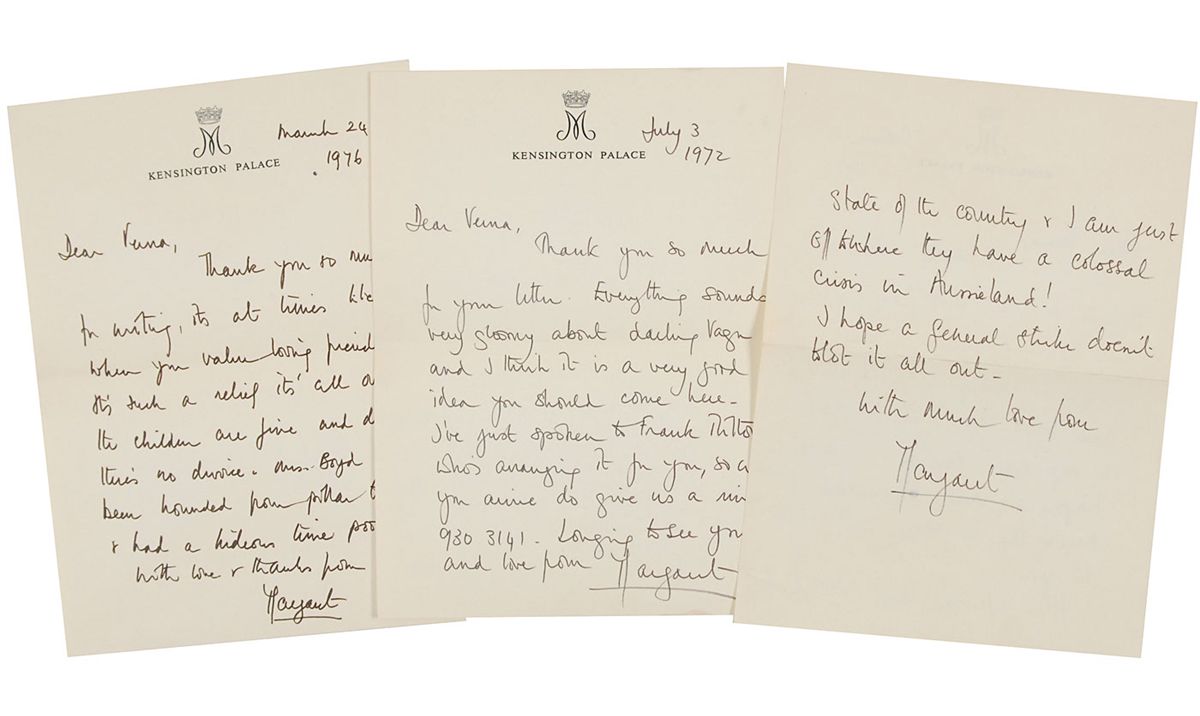 M
KENSINGTON PALACE
March 24
1976
Dear Verna,
Thank you so
for writing, it's at times
when you value loving
It's such a relief it's all
the children are fine and
there's no divorce. Boyd
been hounded from pillar
& had a hideous time
with love & thanks from
Margaret
M
KENSINGTON PALACE
July 3
1972
Dear Verna,
Thank you so much
for your letter. Everything sounds
very gloomy about darling
and I think it is a very good
idea you should come here -
I've just spoken to Frank
who's arranging it for you, so
you arrive do give us a
930 3141 - Longing to see you
and love from Margaret
State of the country & I am just
off to where they have a colossal
crisis in Aussieland!
I hope a general strike doesn't
blot it all out -
with much love from
Margaret